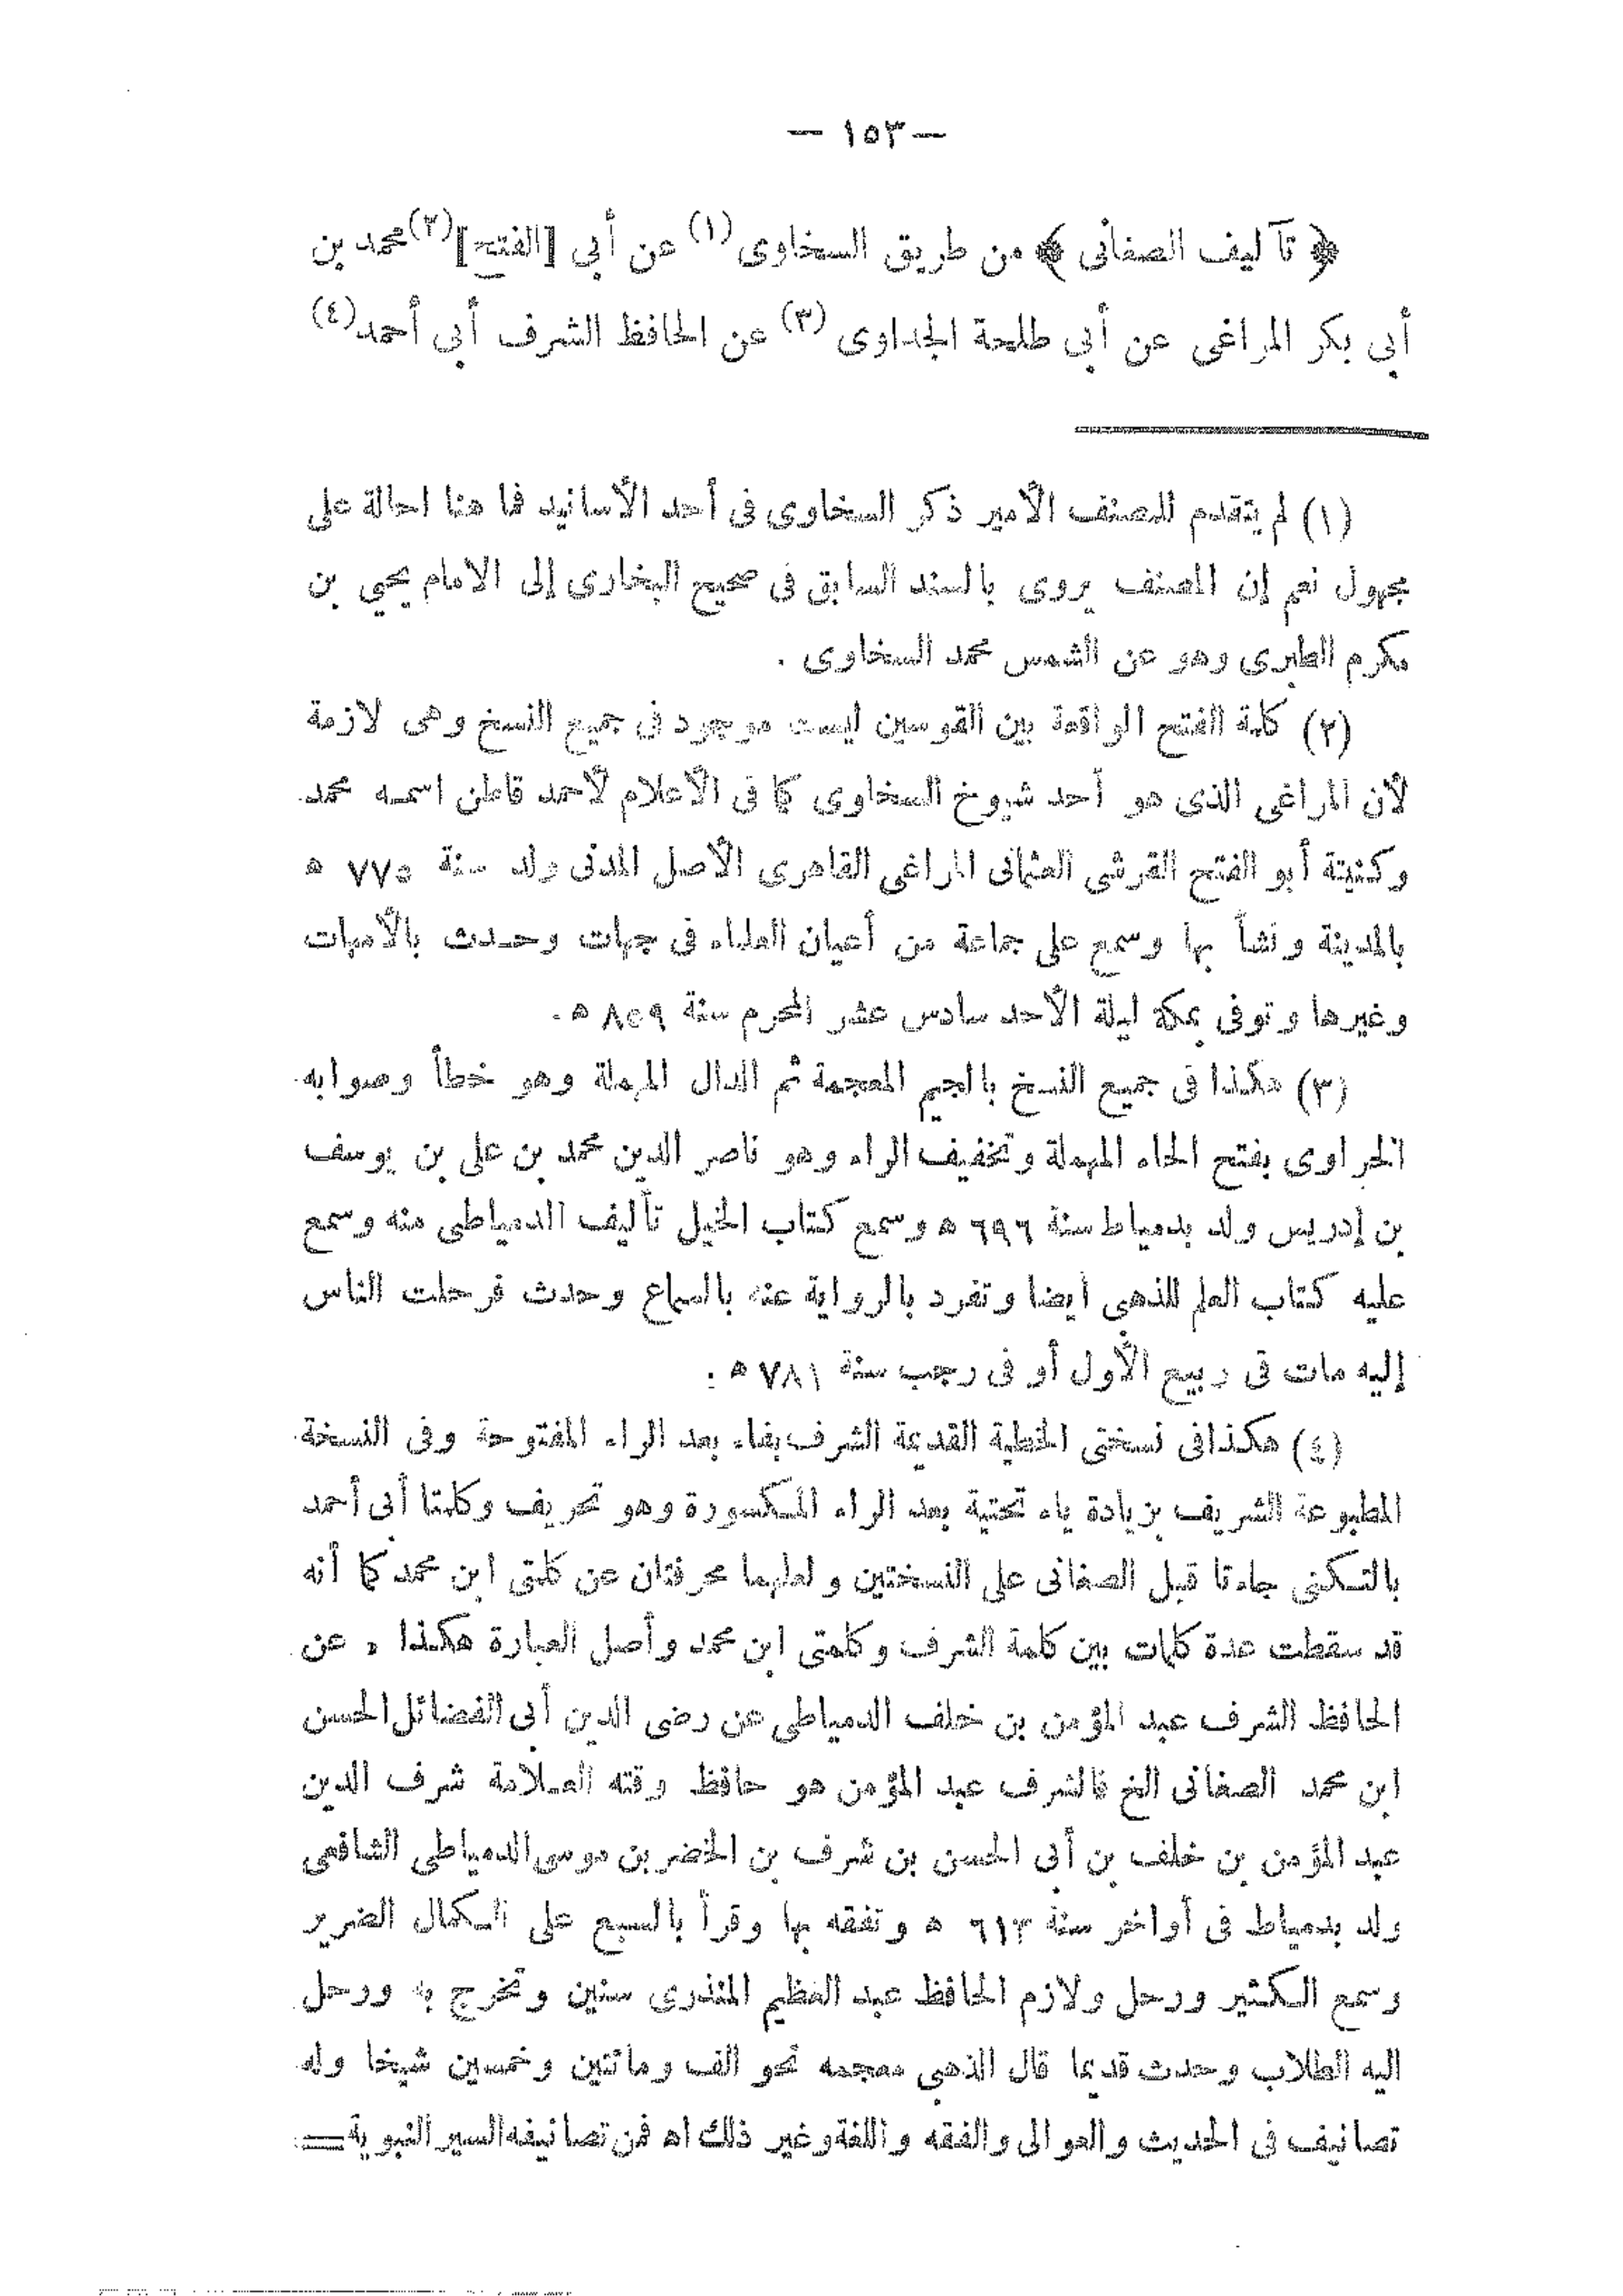 — ١٥٣ —
﴿ تآليف الصغانى ﴾ من طريق السخاوى (١) عن أبي [الفتح] (٢) محمد بن
أبى بكر المراغى عن أبي طلحة الجداوى (٣) عن الحافظ الشرف أبى أحمد (٤)
(١) لم يتقدم للمصنف الأمير ذكر السخاوى فى أحد الأسانيد فما هنا احالة على
مجهول نعم إن المصنف يروى بالسند السابق فى صحيح البخارى إلى الامام يحيي بن
مكرم الطبرى وهو عن الشمس محمد السخاوى .
(٢) كلمة الفتح الواقعة بين القوسين ليست موجود فى جميع النسخ وهى لازمة
لأن المراغى الذى هو أحد شيوخ السخاوى كما فى الأعلام لأحمد قاطن اسمه محمد
وكنيتة أبو الفتح القرشى العثمانى المراغى القاهرى الأصل المدنى ولد سنة ٧٧٥ ه
بالمدينة ونشأ بها وسمع على جماعة من أعيان العلماء فى جهات وحدث بالأمهات
وغيرها وتوفى بمكة ليلة الأحد سادس عشر المحرم سنة ٨٥٩ ه.
(٣) هكذا فى جميع النسخ بالجيم المعجمة ثم الدال المهملة وهو خطأ وصوابه
الحراوى بفتح الحاء المهملة وتخفيف الراء وهو ناصر الدين محمد بن على بن يوسف
بن إدريس ولد بدمياط سنة ٦٩٦ ه وسمع كتاب الخيل تأليف الدمياطى منه وسمع
عليه كتاب العلم للذهبى أيضا وتفرد بالرواية عنه بالسماع وحدث فرحلت الناس
إليه مات فى ربيع الأول أو فى رجب سنة ٧٨١ ه .
(٤) هكذا فى نسختى الخطية القديمة الشرف بفاء بعد الراء المفتوحة وفى النسخة
المطبوعة الشريف بزيادة ياء تحتية بعد الراء المكسورة وهو تحريف وكلمتا أبى أحمد
بالتكنى جاءتا قبل الصغانى على النسختين ولعلهما محرفتان عن كلمتى ابن محمد كما أنه
قد سقطت عدة كلمات بين كلمة الشرف وكلمتى ابن محمد وأصل العبارة هكذا « عن
الحافظ الشرف عبد المؤمن بن خلف الدمياطى عن رضى الدين أبى الفضائل الحسن
ابن محمد الصغانى الخ فالشرف عبد المؤمن هو حافظ وقته العلامة شرف الدين
عبد المؤمن بن خلف بن أبى الحسن بن شرف بن الخضر بن موسى الدمياطى الشافعى
ولد بدمياط فى أواخر سنة ٦١٣ ه وتفقه بها وقرأ بالسبع على الكمال الضرير
وسمع الكثير ورحل ولازم الحافظ عبد العظيم المنذرى سنين وتخرج به ورحل
اليه الطلاب وحدث قديما قال الذهبى معجمه نحو الف ومائتين وخمسين شيخا وله
تصانيف فى الحديث والعوالى والفقه واللغة وغير ذلك اه فمن تصانيفه السير النبوية =